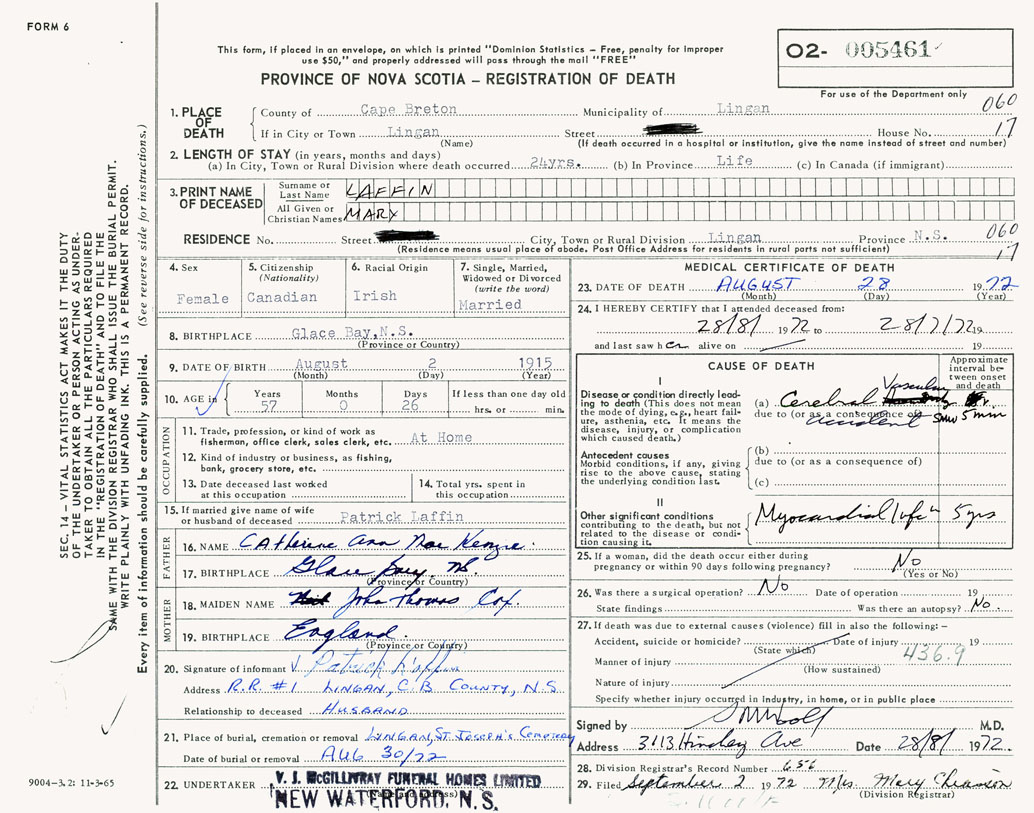 FORM 6
This form, if placed in an envelope, on which is printed "Dominion Statistics – Free, penalty for improper
use $50," and properly addressed will pass through the mail "FREE"
PROVINCE OF NOVA SCOTIA – REGISTRATION OF DEATH
O2- 005461
For use of the Department only
060
17
1. PLACE OF DEATH
County of Cape Breton Municipality of Lingan
If in City or Town Lingan Street House No.
(Name) (If death occurred in a hospital or institution, give the name instead of street and number)
2. LENGTH OF STAY (in years, months and days)
(a) In City, Town or Rural Division where death occurred 24yrs. (b) In Province Life (c) In Canada (if immigrant)
3. PRINT NAME OF DECEASED
Surname or Last Name LAFFIN
All Given or Christian Names MARY
RESIDENCE No. Street City, Town or Rural Division Lingan Province N.S. 060
17
(Residence means usual place of abode. Post Office Address for residents in rural parts not sufficient)
4. Sex Female
5. Citizenship (Nationality) Canadian
6. Racial Origin Irish
7. Single, Married, Widowed or Divorced (write the word) Married
8. BIRTHPLACE Glace Bay,N.S.
(Province or Country)
9. DATE OF BIRTH August 2 1915
(Month) (Day) (Year)
10. AGE in Years 57 Months 0 Days 26 If less than one day old hrs. or min.
OCCUPATION
11. Trade, profession, or kind of work as fisherman, office clerk, sales clerk, etc. At Home
12. Kind of industry or business, as fishing, bank, grocery store, etc.
13. Date deceased last worked at this occupation
14. Total yrs. spent in this occupation
15. If married give name of wife or husband of deceased Patrick Laffin
FATHER
16. NAME CATherine Ann Mac Kenzie.
17. BIRTHPLACE Glace Bay. NS.
(Province or Country)
MOTHER
18. MAIDEN NAME John Thomas Cox.
19. BIRTHPLACE England.
(Province or Country)
20. Signature of informant Patrick Laffin
Address R.R. #1 LINGAN, C.B COUNTY, N.S
Relationship to deceased HUSBAND
21. Place of burial, cremation or removal LINGAN, ST JOSEPH'S CEMETERY
Date of burial or removal AUG 30/72
22. UNDERTAKER V. J. McGILLIVRAY FUNERAL HOMES LIMITED
NEW WATERFORD, N. S.
MEDICAL CERTIFICATE OF DEATH
23. DATE OF DEATH AUGUST 28 1972
(Month) (Day) (Year)
24. I HEREBY CERTIFY that I attended deceased from:
28/8/ 1972 to 28/7/72 19
and last saw her alive on 19
CAUSE OF DEATH
Approximate interval between onset and death
I
Disease or condition directly leading to death (This does not mean the mode of dying, e.g., heart failure, asthenia, etc. It means the disease, injury, or complication which caused death.)
(a) Cerebral Vascular
due to (or as a consequence of)
accident SMW 5 min
Antecedent causes
Morbid conditions, if any, giving rise to the above cause, stating the underlying condition last.
(b)
due to (or as a consequence of)
(c)
II
Other significant conditions contributing to the death, but not related to the disease or condition causing it.
Myocardial 5 yrs
25. If a woman, did the death occur either during pregnancy or within 90 days following pregnancy? No
(Yes or No)
26. Was there a surgical operation? No Date of operation 19
State findings Was there an autopsy? No.
27. If death was due to external causes (violence) fill in also the following:–
Accident, suicide or homicide? Date of injury 19
(State which) 436.9
Manner of injury
(How sustained)
Nature of injury
Specify whether injury occurred in industry, in home, or in public place
Signed by M.D.
Address 3113 Hinchey Ave Date 28/8/ 1972.
28. Division Registrar's Record Number 656
29. Filed September 2 1972 Mrs Mary
(Division Registrar)
SEC. 14 – VITAL STATISTICS ACT MAKES IT THE DUTY
OF THE UNDERTAKER OR PERSON ACTING AS UNDER-
TAKER TO OBTAIN ALL THE PARTICULARS REQUIRED
IN THE "REGISTRATION OF DEATH" AND TO FILE THE
SAME WITH THE DIVISION REGISTRAR WHO SHALL ISSUE THE BURIAL PERMIT.
WRITE PLAINLY WITH UNFADING INK. THIS IS A PERMANENT RECORD.
Every item of information should be carefully supplied. (See reverse side for instructions.)
9004-3.2: 11-3-65